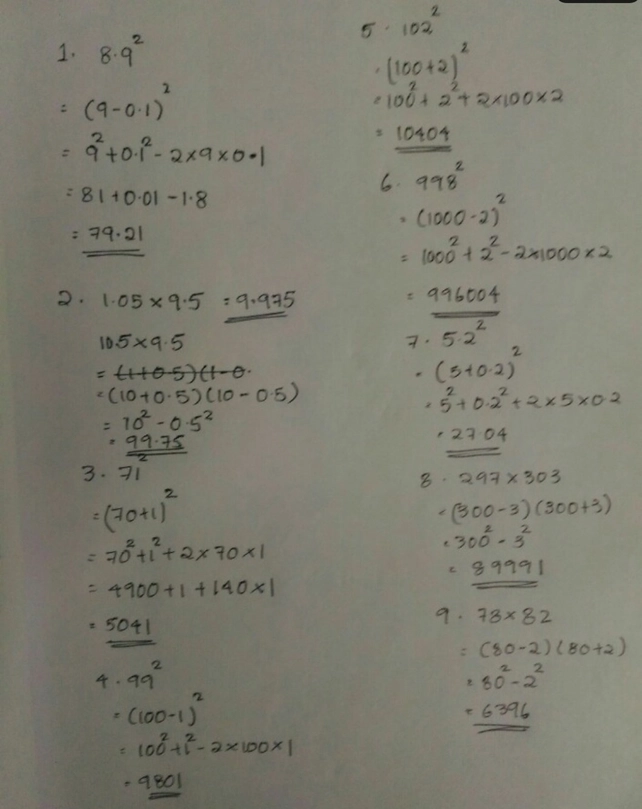 1. 8.9²
= (9-0.1)²
= 9²+0.1²-2×9×0.1
= 81+0.01-1.8
= 79.21
2. 1.05×9.5 = 9.975
10.5×9.5
= (1+0.5)(1-0.
= (10+0.5)(10-0.5)
= 10²-0.5²
= 99.75
3. 71²
= (70+1)²
= 70²+1²+2×70×1
= 4900+1+140×1
= 5041
4. 99²
= (100-1)²
= 100²+1²-2×100×1
= 9801
5. 102²
= (100+2)²
= 100²+2²+2×100×2
= 10404
6. 998²
= (1000-2)²
= 1000²+2²-2×1000×2
= 996004
7. 5.2²
= (5+0.2)²
= 5²+0.2²+2×5×0.2
= 27.04
8. 297×303
= (300-3)(300+3)
= 300²-3²
= 89991
9. 78×82
= (80-2)(80+2)
= 80²-2²
= 6396